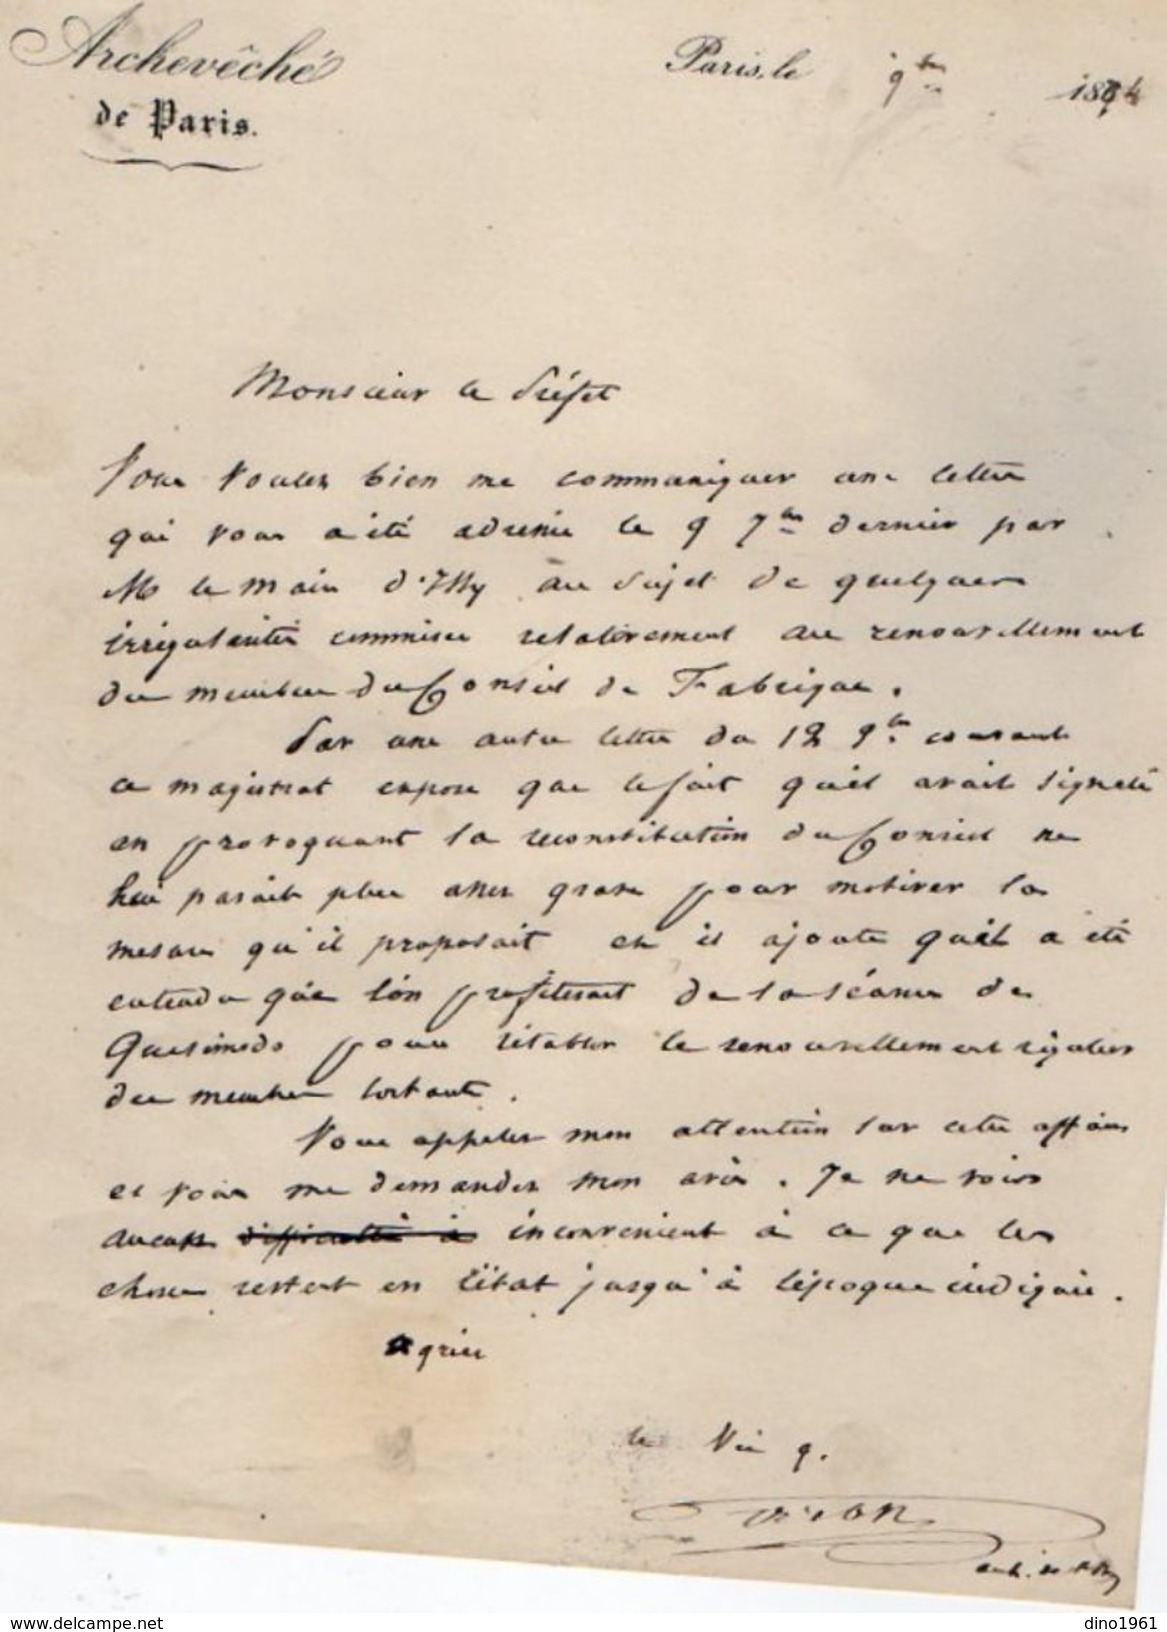 Archevêché
de Paris.
Paris, le 9bre 1874
Monsieur le Préfet
Vous voulez bien me communiquer une lettre
qui vous a été adressée le 9 7bre dernier par
M le maire d'Issy au sujet de quelques
irrégularités commises relativement au renouvellement
des membres du Conseil de Fabrique.
Par une autre lettre du 12 9bre courant
ce magistrat expose que le fait qu'il avait signalé
en provoquant la reconstitution du Conseil ne
lui parait plus assez grave pour motiver la
mesure qu'il proposait et il ajoute qu'il a été
entendu que l'on profiterait de la séance de
Quasimodo pour rétablir le renouvellement régulier
des membres sortants.
Vous appelez mon attention sur cette affaire
et vous me demandez mon avis. Je ne vois
aucun difficulté à inconvenient à ce que les
choses restent en l'état jusqu'à l'époque indiquée.
Agréez
le Vic g.
delcampe.net
dino1961